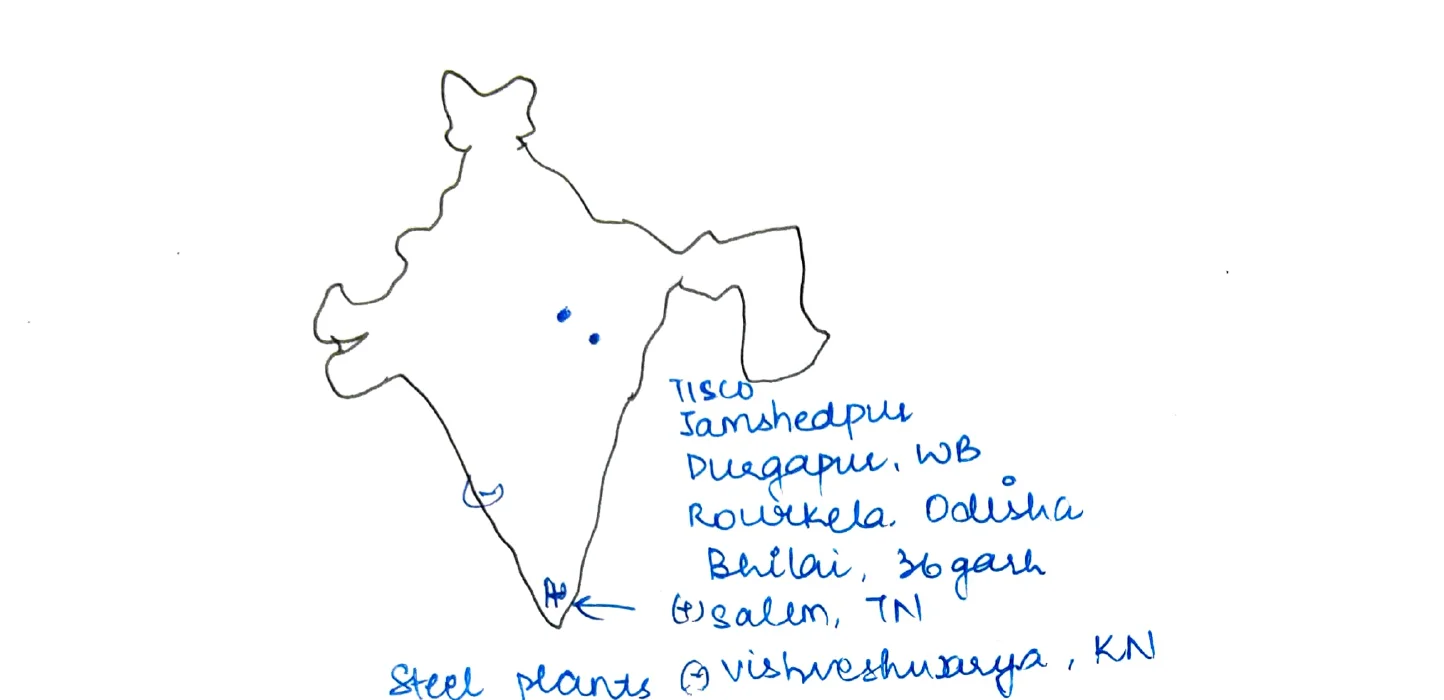 TISCO
Jamshedpur
Durgapur, WB
Rourkela. Odisha
Bhilai, 36 garh
(+) Salem, TN
Steel plants (-) Vishveshwarya, KN